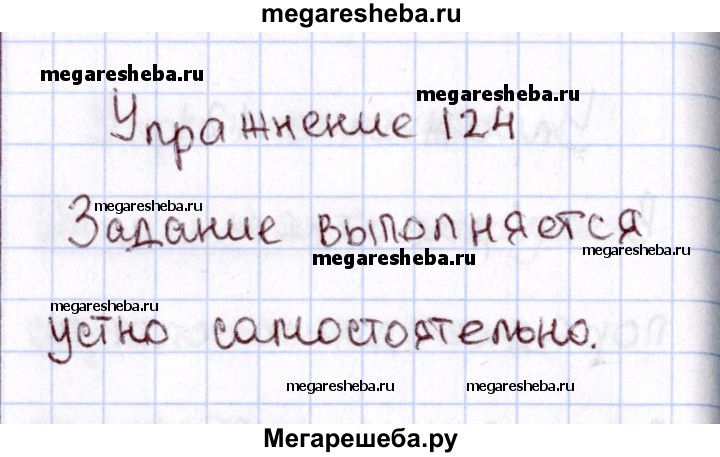 megaresheba.ru
megaresheba.ru
megaresheba.ru
Упражнение 124
megaresheba.ru
Задание выполняется
megaresheba.ru
megaresheba.ru
megaresheba.ru
устно самостоятельно.
megaresheba.ru
megaresheba.ru
Мегарешеба.ру